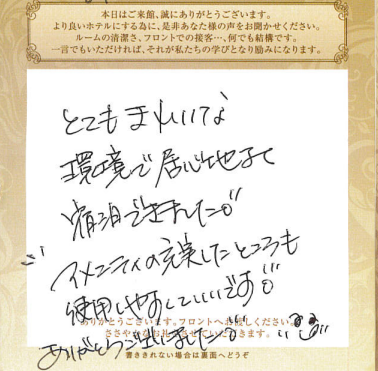 本日はご来館、誠にありがとうございます。
より良いホテルにする為に、是非あなた様の声をお聞かせください。
ルームの清潔さ、フロントでの接客…、何でも結構です。
一言でもいただければ、それが私たちの学びとなり励みになります。
とてもきれいな
環境で居心地よく
宿泊できました
アメニティの充実したところも
使用しやすくていいです
ありがとうございます。フロントへお渡しください。
ささやかなお礼をさせていただきます。
ありがとうございました
書ききれない場合は裏面へどうぞ